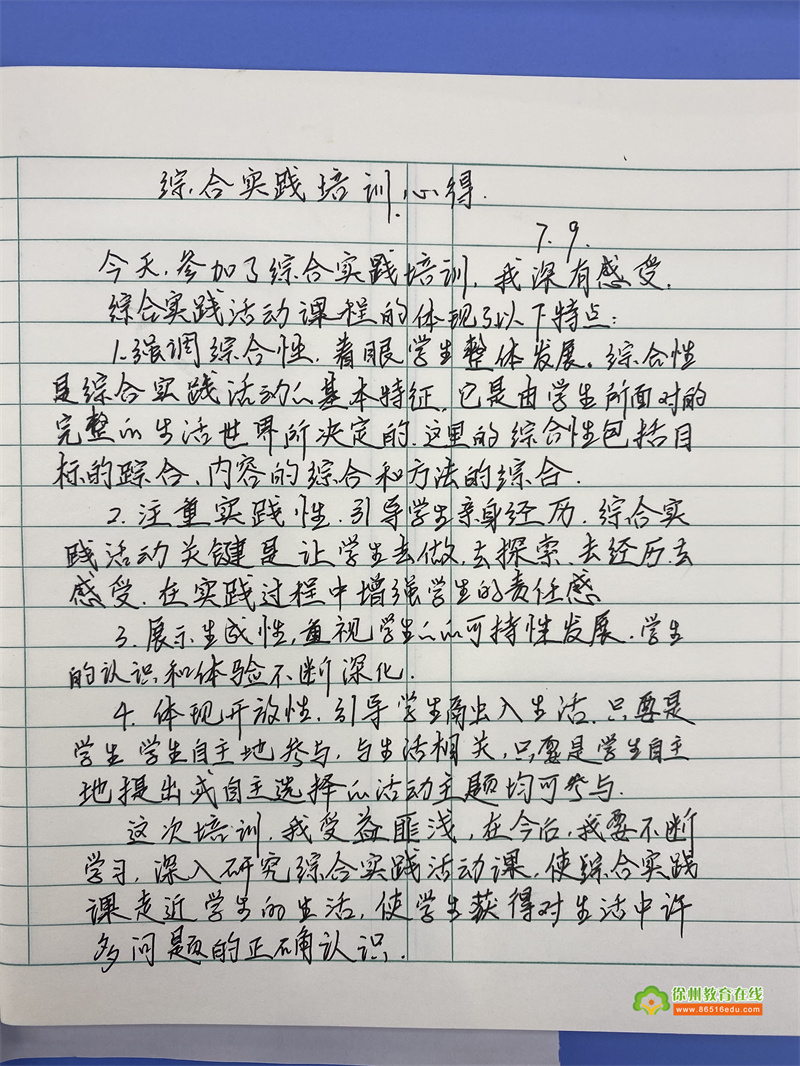 综合实践培训心得.
7.9.
今天,参加了综合实践培训,我深有感受.
综合实践活动课程的体现了以下特点:
1.强调综合性,着眼学生整体发展。综合性
是综合实践活动的基本特征,它是由学生所面对的
完整的生活世界所决定的.这里的综合性包括目
标的综合、内容的综合和方法的综合.
2.注重实践性.引导学生亲身经历.综合实
践活动关键是让学生去做,去探索、去经历、去
感受.在实践过程中增强学生的责任感
3.展示生成性,重视学生的可持性发展.学生
的认识和体验不断深化.
4.体现开放性.引导学生融入生活.只要是
学生 学生自主地参与,与生活相关,只要是学生自主
地提出或自主选择的活动主题均可参与.
这次培训,我受益匪浅,在今后,我要不断
学习,深入研究综合实践活动课,使综合实践
课走近学生的生活,使学生获得对生活中许
多问题的正确认识.
徐州教育在线
www.86516edu.com